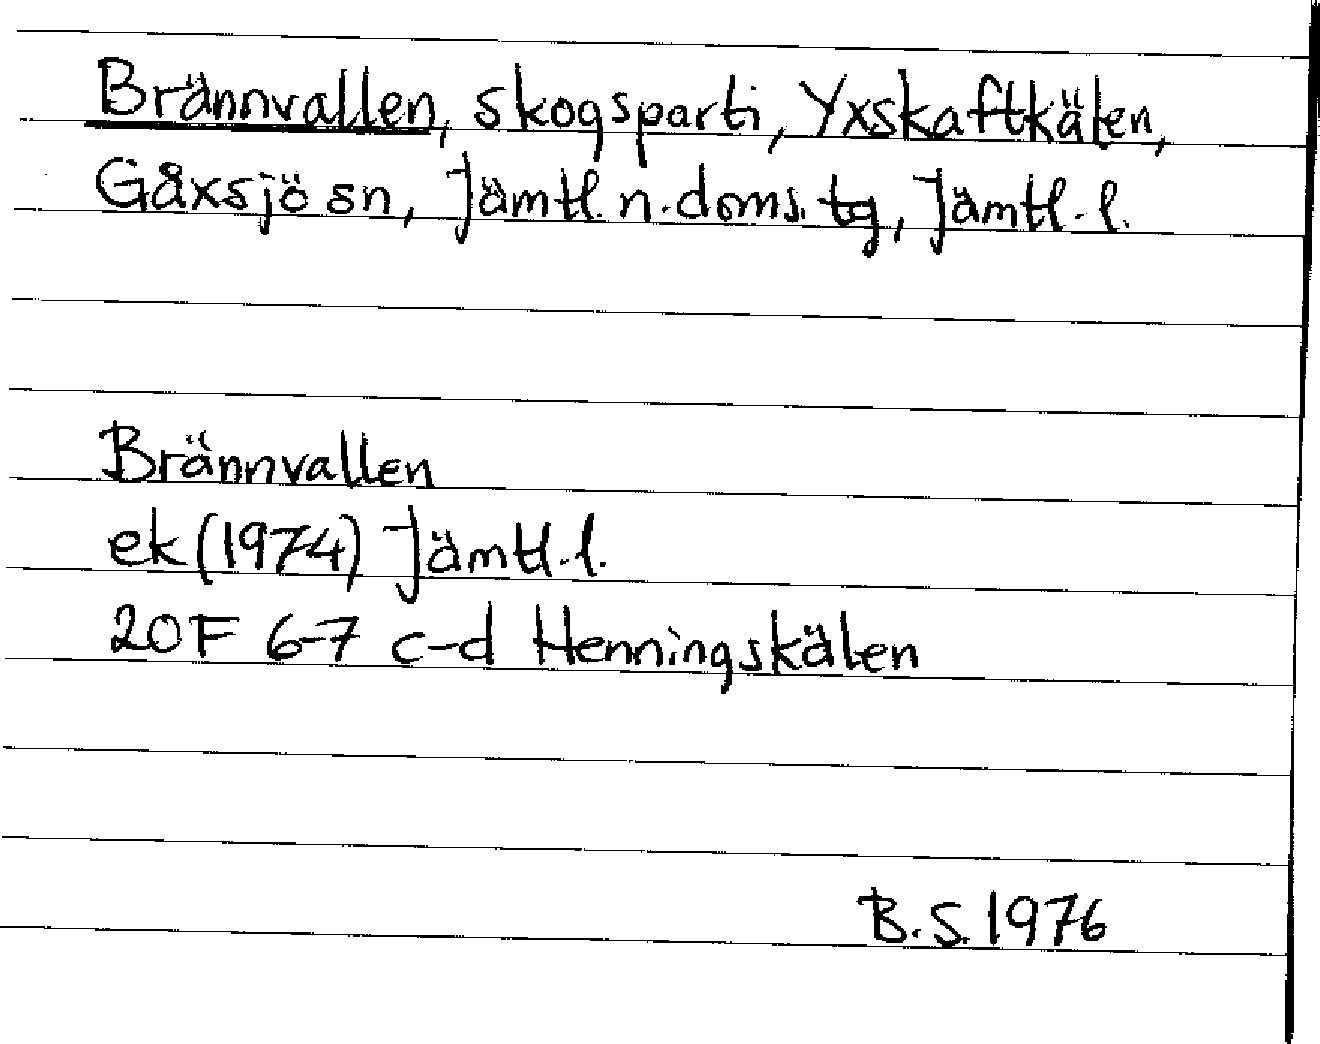 Brännvallen, skogsparti, Yxskaftkälen,
Gåxsjö sn, Jämtl. n. doms. tg, Jämtl. l.
Brännvallen
ek (1974) Jämtl. l.
20F 6-7 c-d Henningskälen
B. S. 1976